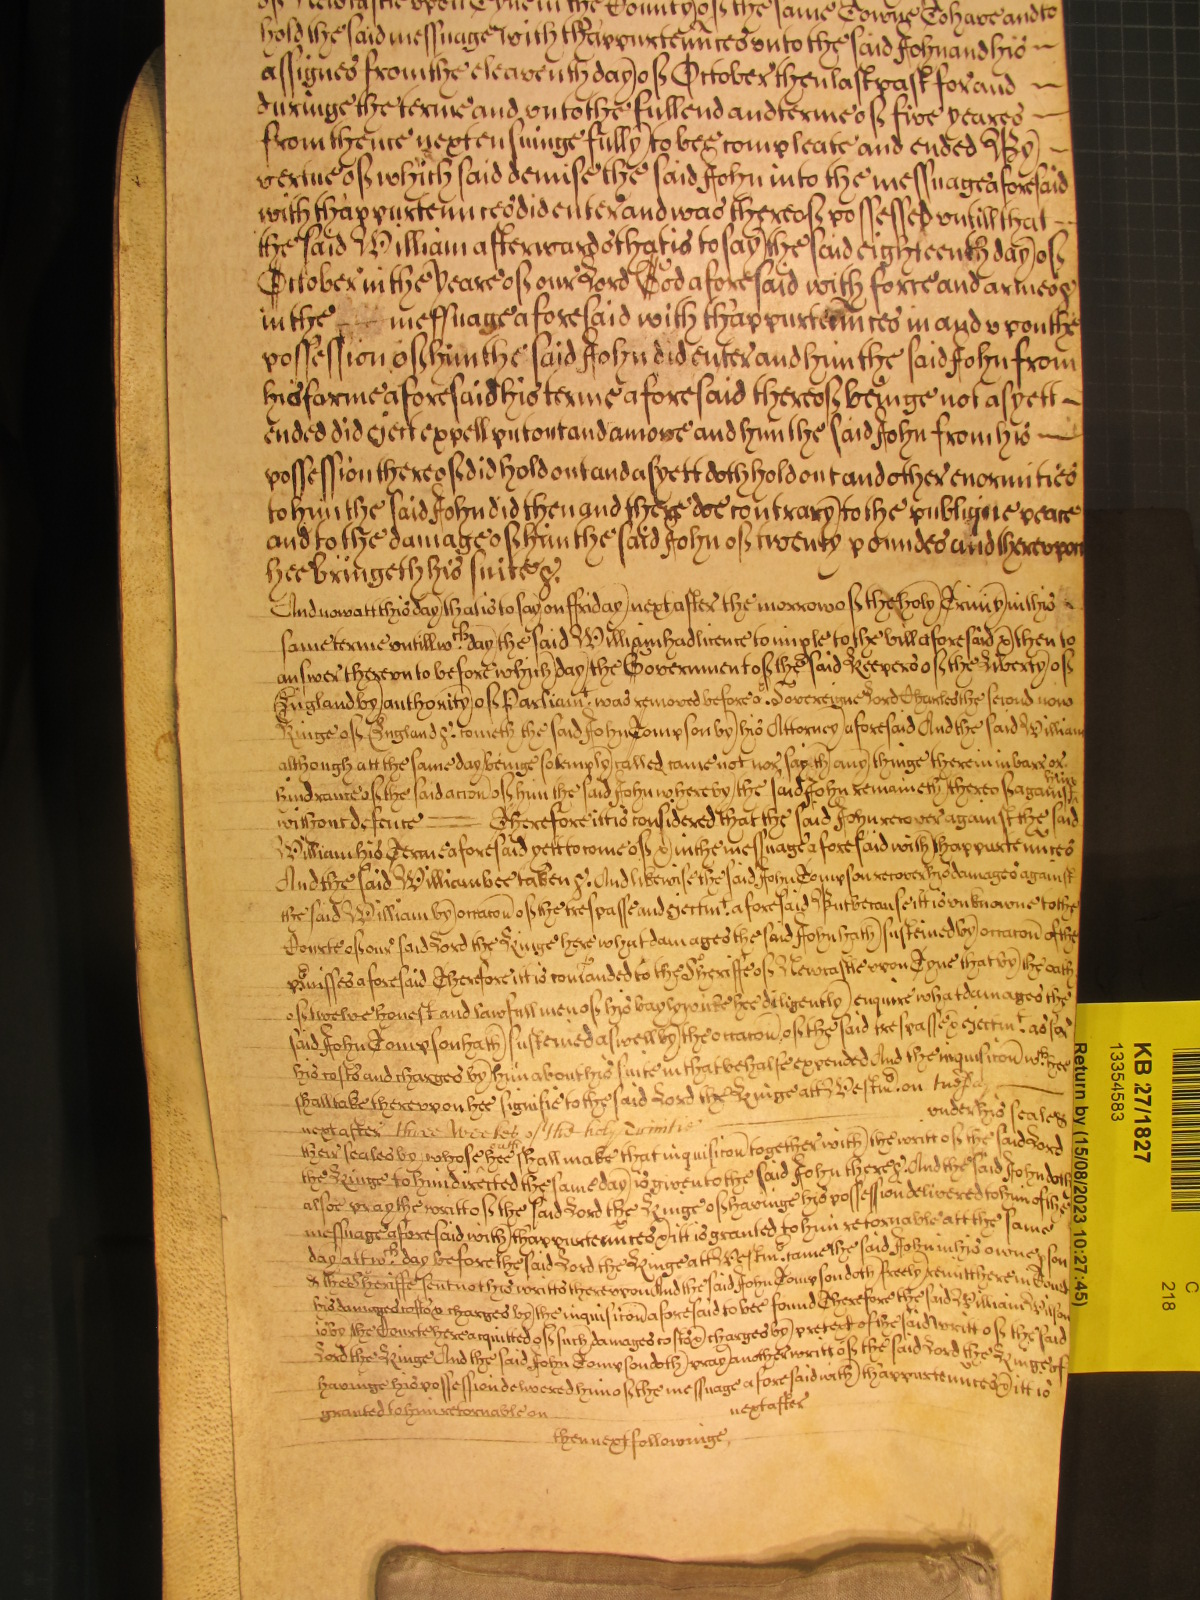 of Newcastle upon Tyne in the County of the same Towne To have and to
hold the said messuage with thappurtennces unto the said John and his
assignes from the eleaventh day of October then last past for and
duringe the terme and unto the full end and terme of five yeares
from thence next ensuinge fully to bee compleate and ended By
vertue of which said demise the said John into the messuage aforesaid
with thappurtennces did enter and was thereof possessed untill that
the said William afterwards that is to say the said eighteenth day of
October in the Yeare of our Lord God aforesaid with force and armes &
in the messuage aforesaid with thappurtennces in and upon the
possession of him the said John did enter and him the said John from
his farme aforesaid his terme aforesaid thereof beinge not as yett
ended did eject expell put out and amove and him the said John from his
possession thereof did hold out and as yett doth hold out and other enormities
to him the said John did then and there doe contrary to the publique peace
and to the damage of him the said John of twenty poundes and thereupon
hee bringeth his suite &.
And now att this day that is to say on ffriday next after the morrow of the holy Trinity in this
same terme untill wch day the said William had licence to imple to the bill aforesaid & then to
answer thereunto before which day the Government of the said Keepers of the Liberty of
England by authority of Parliamt. was removed before o. Sovereigne Lord Charles the second now
Kinge of England &. cometh the said John Tompson by his Attorney aforesaid And the said William
although att the same day beinge solemply called came not nor sayth any thinge therein in barr or
hindrance of the said accion of him the said John whereby the said John remaineth thereof against him
without defence Therefore itt is considered that the said John recover against the said
William his Terme aforesaid yett to come of & in the messuage aforesaid with thappurtennces
And the said William bee taken &. And likewise the said John Tompson recover his damages against
the said William by occacon of the trespasse and ejectmt. aforesaid But because itt is unknowne to the
Courte of our said Lord the Kinge here what damages the said John hath susteined by occacon of the
pmisses aforesaid Therefore itt is comanded to the Sheriffe of Newcastle upon Tyne that by the oath
of twelve honest and lawfull men of his baylywicke hee diligently enquire what damages the
said John Tompson hath susteined aswell by the occacon of the said trespasse & ejectmt. as for
his costs and charges by him about his suite in that behalfe expended And the inquisicon wch hee
shall take thereupon hee signifie to the said Lord the Kinge att Westm. on tuesday
next after three Weekes of the holy Trinitie under his seale &
their seales by whose oath hee shall make that inquisicon together with the writt of the said Lord
the Kinge to him directed the same day is given to the said John there &. And the said John doth
alsoe pray the writt of the said Lord the Kinge of havinge his possession delivered to him of the
messuage aforesaid with thappurtennces & itt is granted to him retornable att the same
day att wch day before the said Lord the Kinge att Westm. came the said John in his owne pson
& the Sheriffe sent not his writts thereupon And the said John Tompson doth freely remitt here in Court
his damages costs & charges by the inquisicon aforesaid to bee found Therefore the said William Wilson
is by the Courte here acquitted of such damages costs & charges by pretext of the said writt of the said
Lord the Kinge And the said John Tompson doth pray another writt of the said Lord the Kinge of
havinge his possession delivered him of the messuage aforesaid with thappurtennces & itt is
granted to him retornable on next after
then next followinge,
KB 27/1827
13354583
Return by (15/08/2023 10:27:45)
C
218